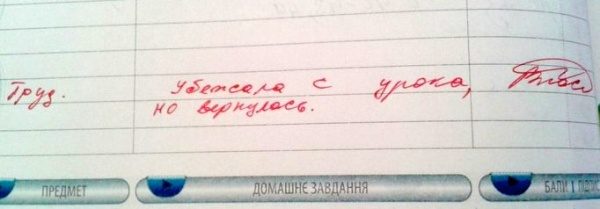 Труд. Убежала с урока,
но вернулась.
ПРЕДМЕТ ДОМАШНЄ ЗАВДАННЯ БАЛИ І ПІДПИС